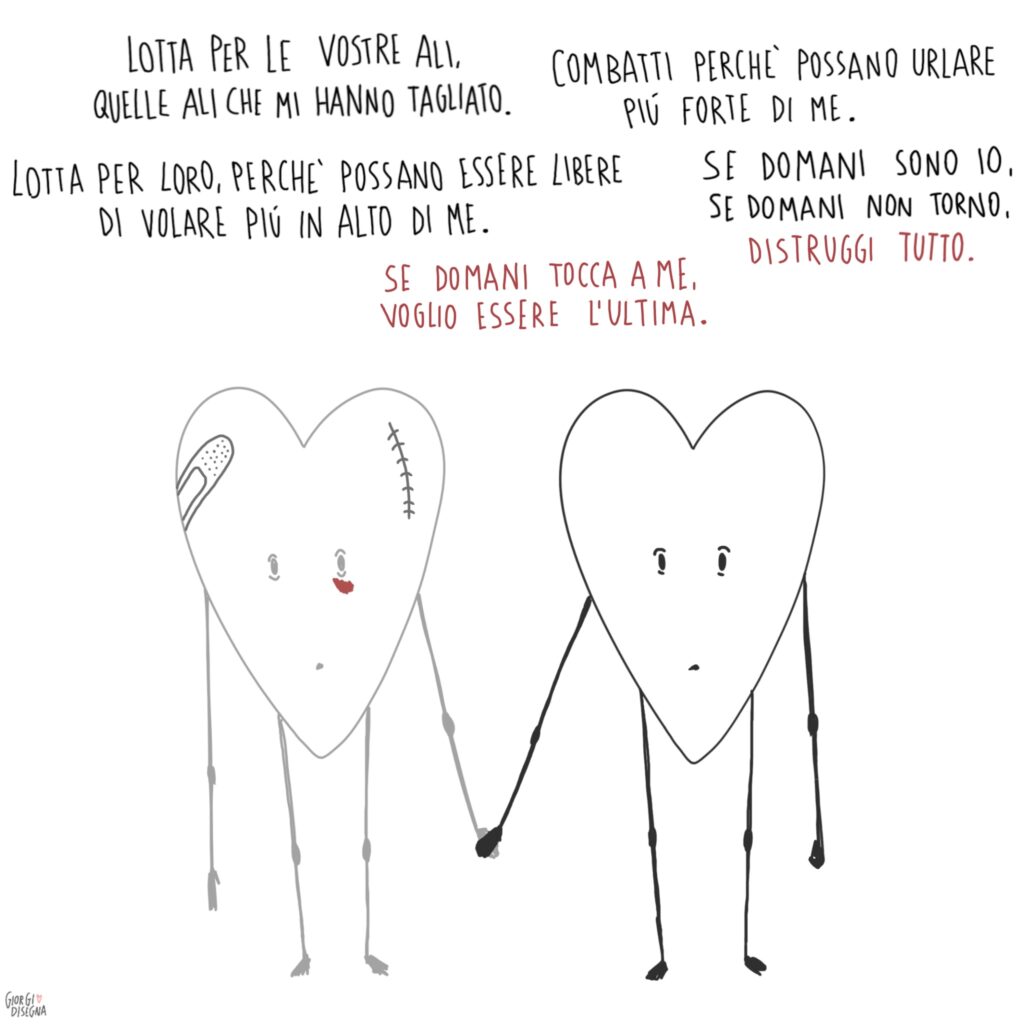 LOTTA PER LE VOSTRE ALI,
QUELLE ALI CHE MI HANNO TAGLIATO.
COMBATTI PERCHÈ POSSANO URLARE
PIÚ FORTE DI ME.
LOTTA PER LORO, PERCHÈ POSSANO ESSERE LIBERE
DI VOLARE PIÚ IN ALTO DI ME.
SE DOMANI SONO IO,
SE DOMANI NON TORNO,
DISTRUGGI TUTTO.
SE DOMANI TOCCA A ME,
VOGLIO ESSERE L'ULTIMA.
GIORGI
DISEGNA